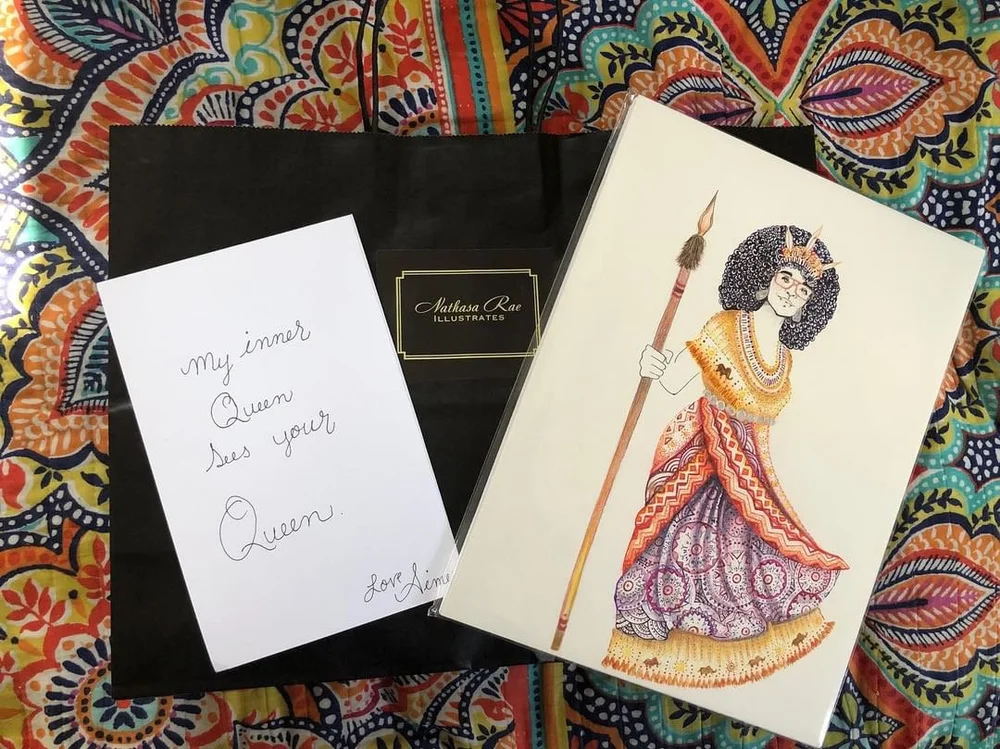 My inner
Queen
Sees your
Queen.
Love Aime
Nathasa Rae
ILLUSTRATES